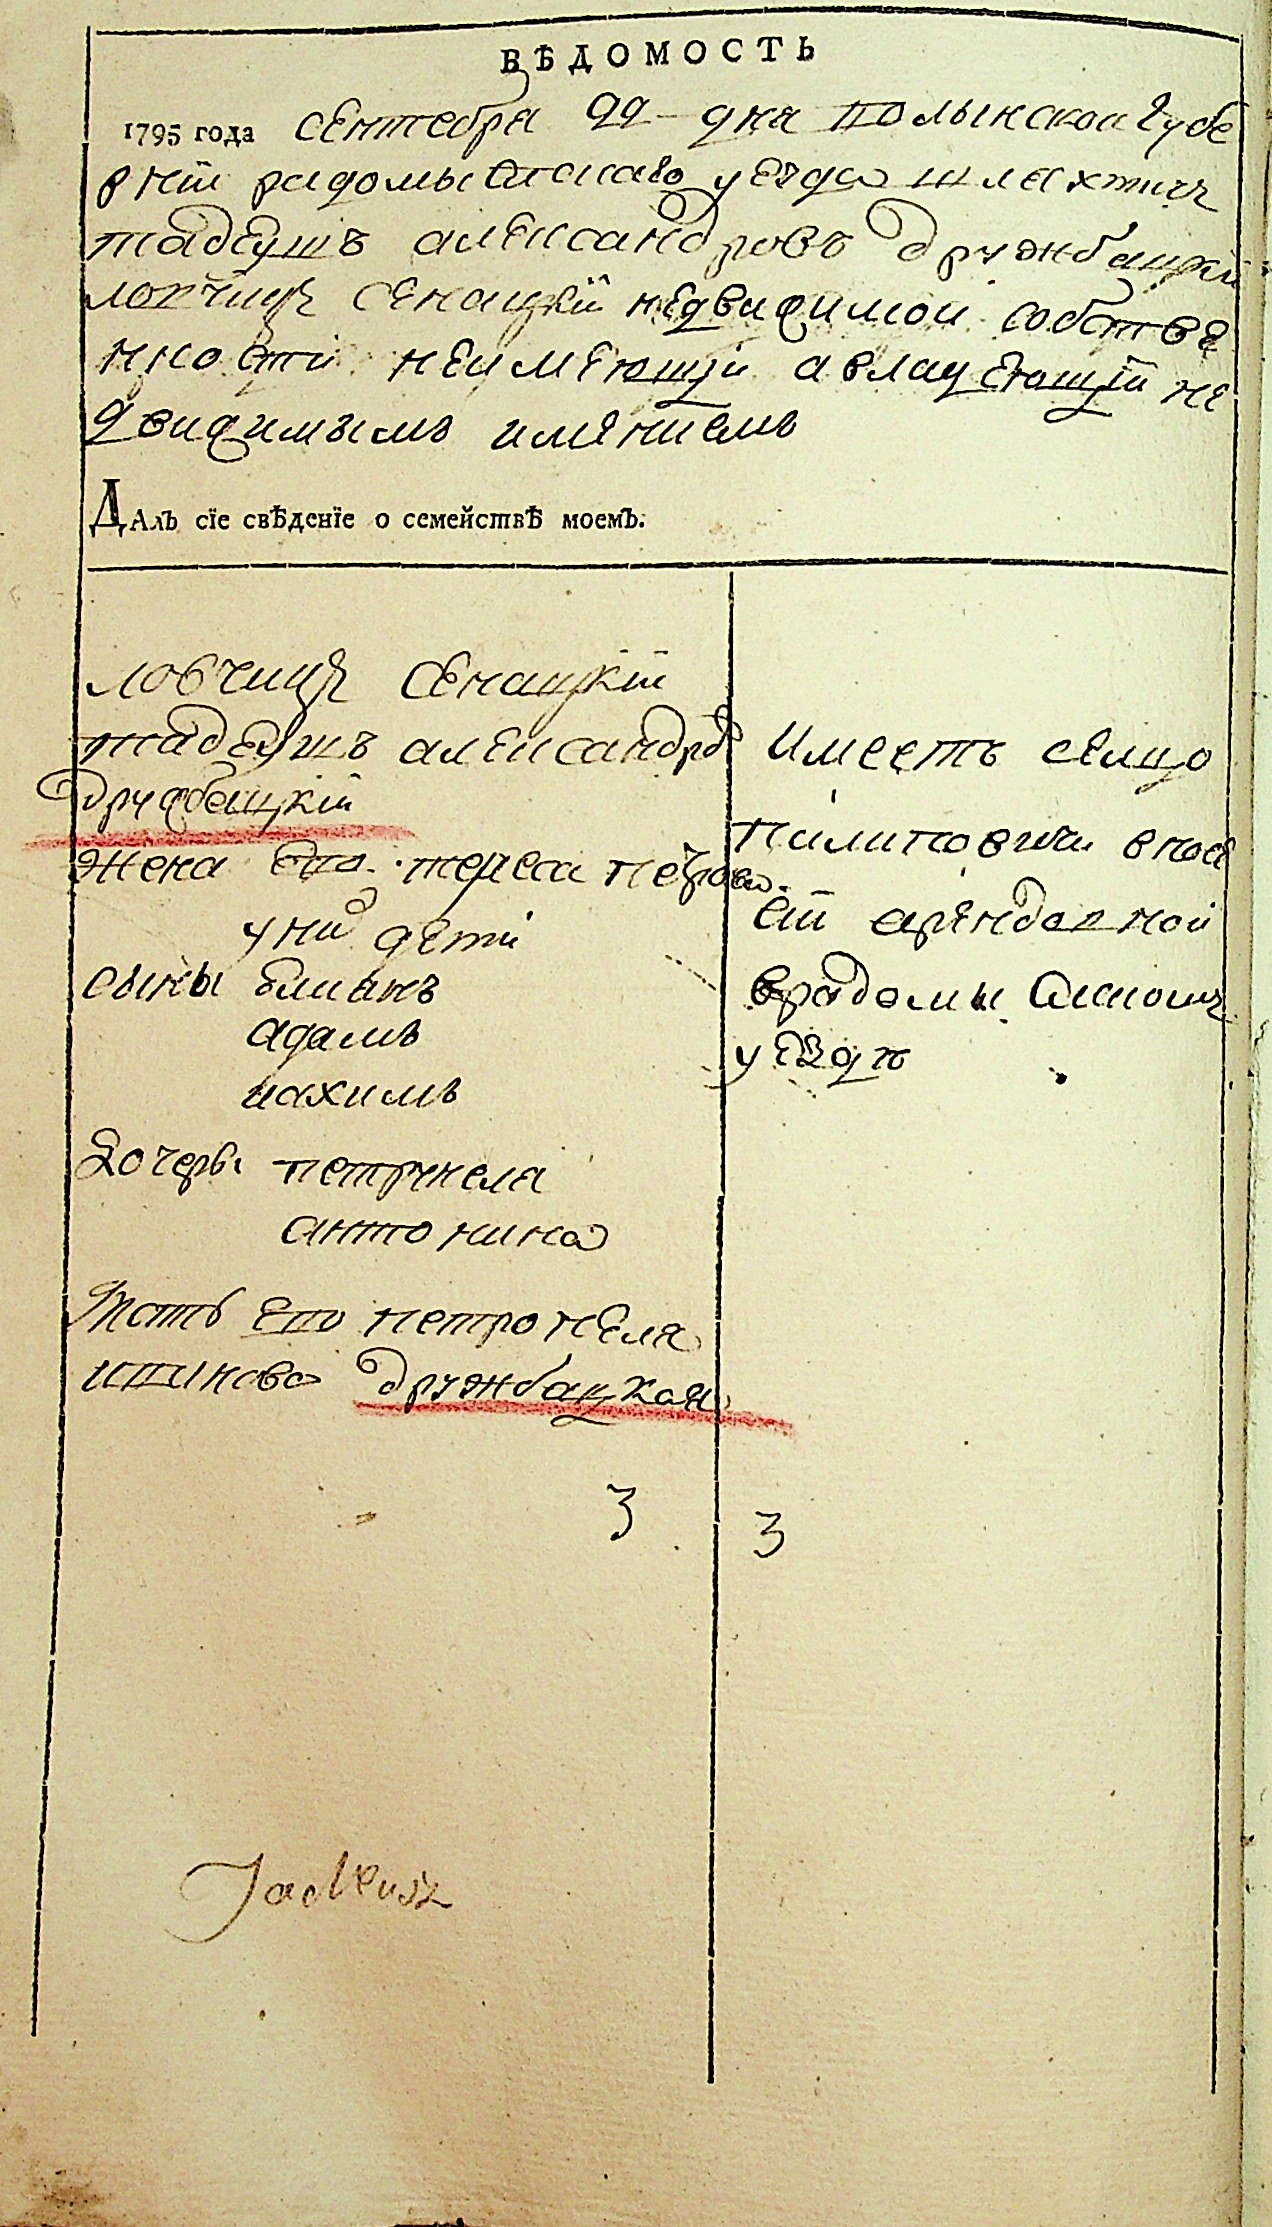 ВѢДОМОСТЬ
1795 года сентебря 22 дня волынской губе
рнїи радомысльскаго уезда шляхтич
тадеушъ александровъ дружбацкїй
ловчицъ сенацкїй недвидимой собстве
нности неимеющїи авладеющїй не
двидимымъ имениемъ
Далъ сїе свѣденїе о семействѣ моемъ.
ловчицъ сенацкїй
тадеушъ александро
дружбацкїй
жена его тереса петрова
уних дети
сыны
адамъ
иахимъ
дочери петрунеля
антонина
Мать его петронеля
дружбацкая
имеетъ селцо
пилиповичи впосе
сїи арендовной
врадомысльском
уезде
3 3
Tadeusz